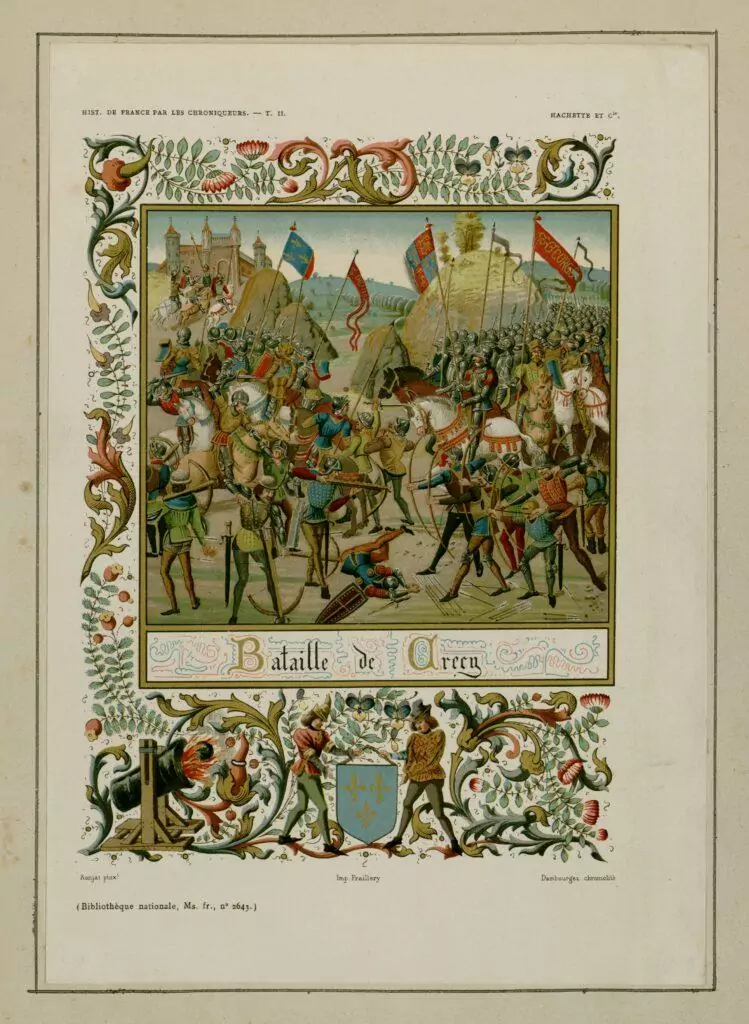 HIST. DE FRANCE PAR LES CHRONIQUEURS. — T. II.
HACHETTE ET Cie.
Bataille de Crecy
Ronjat pinxt
Imp. Fraillery
Dambourgez chromolith
(Bibliothèque nationale, Ms. fr., nº 2643.)